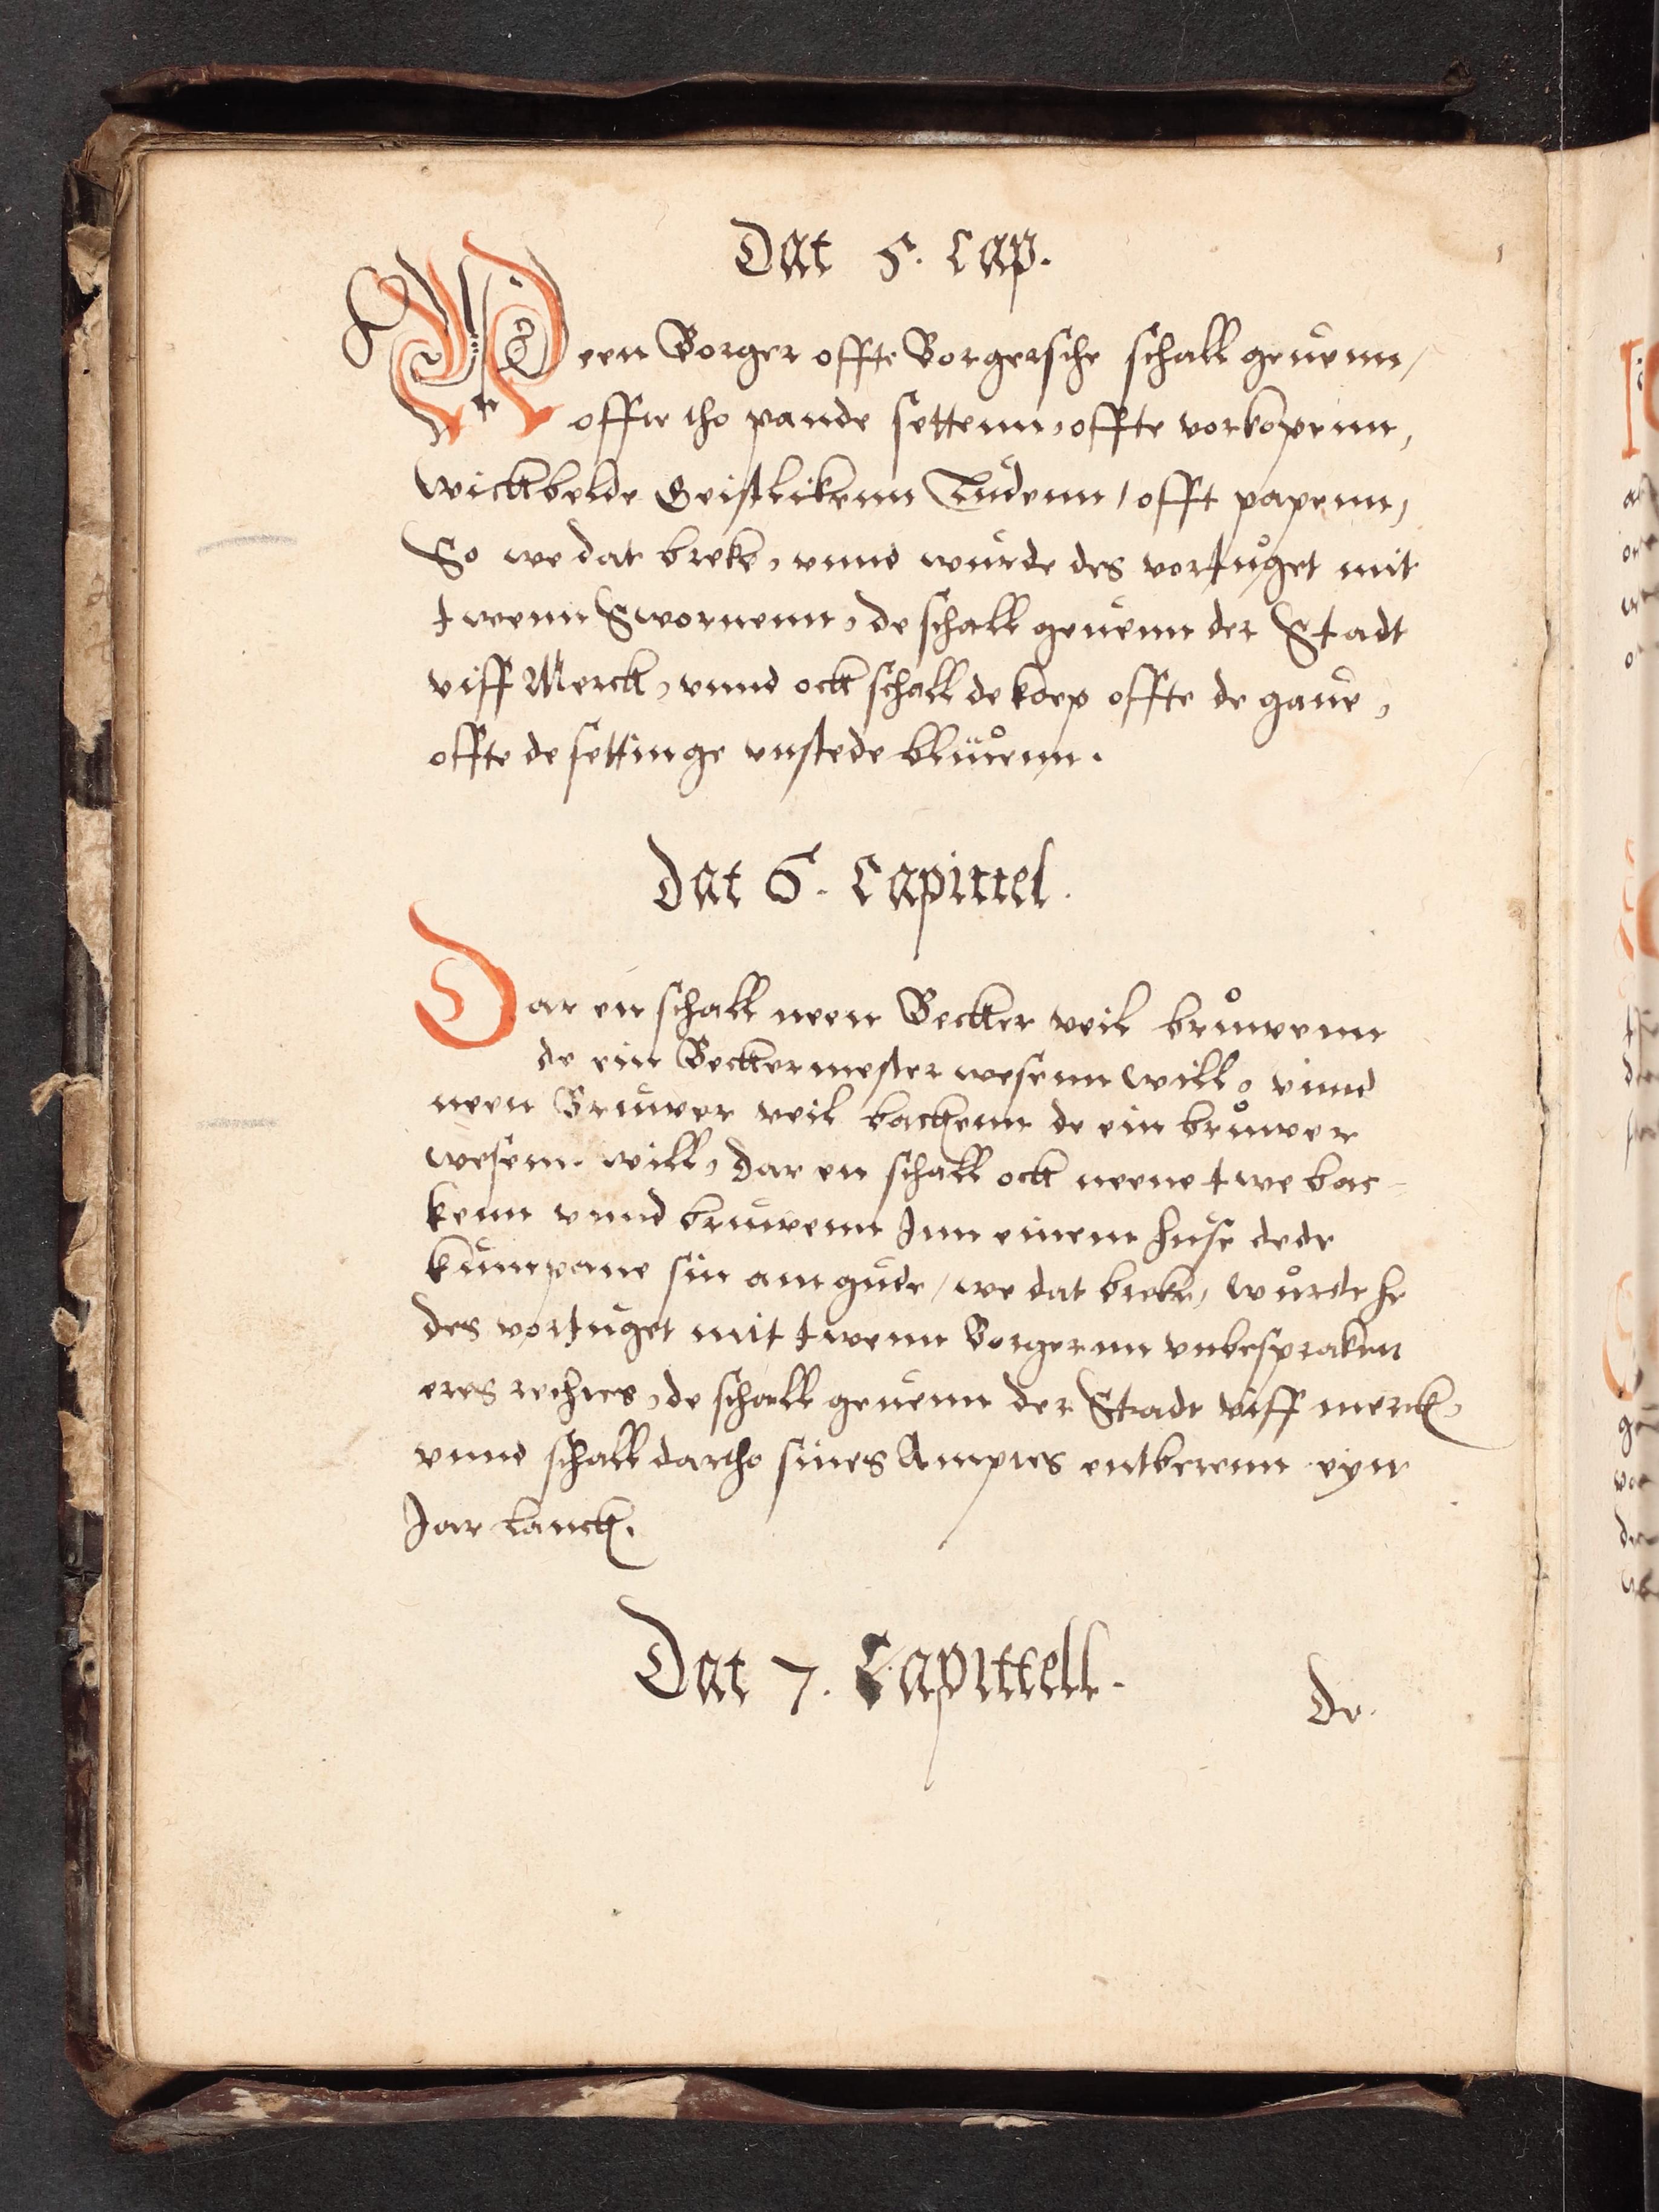 Dat 5. Cap.
Neen Borger offte Borgersche schall geuenn /
offte tho pande settenn, offte vorkopenn,
Wickbelde Geistlikenn Lůdenn / offt papenn,
So we dat breke, vnnd wurde des vortůget mit
twenn Swornenn, de schall geuenn der Stadt
viff Merck, vnnd ock schall de koep offte de gaue,
offte de settinge vnstede bliůenn.
Dat 6. Capittel.
Dar en schall neen Becker veil brůwenn
de ein Beckermester wesenn will, vnnd
neen Bruwer veil backenn de ein brůwer
wesenn will, Dar en schall ock neene twe bac-
kenn vnnd bruwenn Jnn einem huse dede
kumpane sin am gude / we dat breke, wůrde he
des vortuget mit twenn Borgernn vnbespraken
eres rechtes, de schall geuenn der Stadt viff merck,
vnnd schall dartho sines Amptes entberenn eyn
Jar lanck.
Dat 7. Capittell.
De